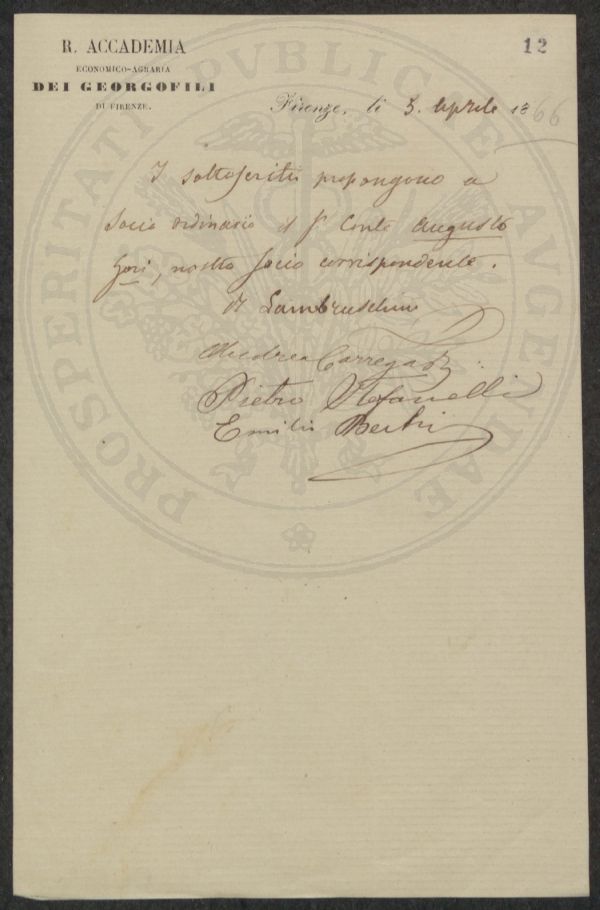 R. ACCADEMIA
ECONOMICO-AGRARIA
DEI GEORGOFILI
DI FIRENZE.
12
Firenze, li 5. Aprile 1866
I sottoscritti propongono a
socio ordinario il Sr Conte Augusto
Gori, nostro socio corrispondente.
R Lambruschini
Andrea Carrega
Pietro Stefanelli
Emilio Bechi
PROSPERITATI PVBLICAE AVGENDAE